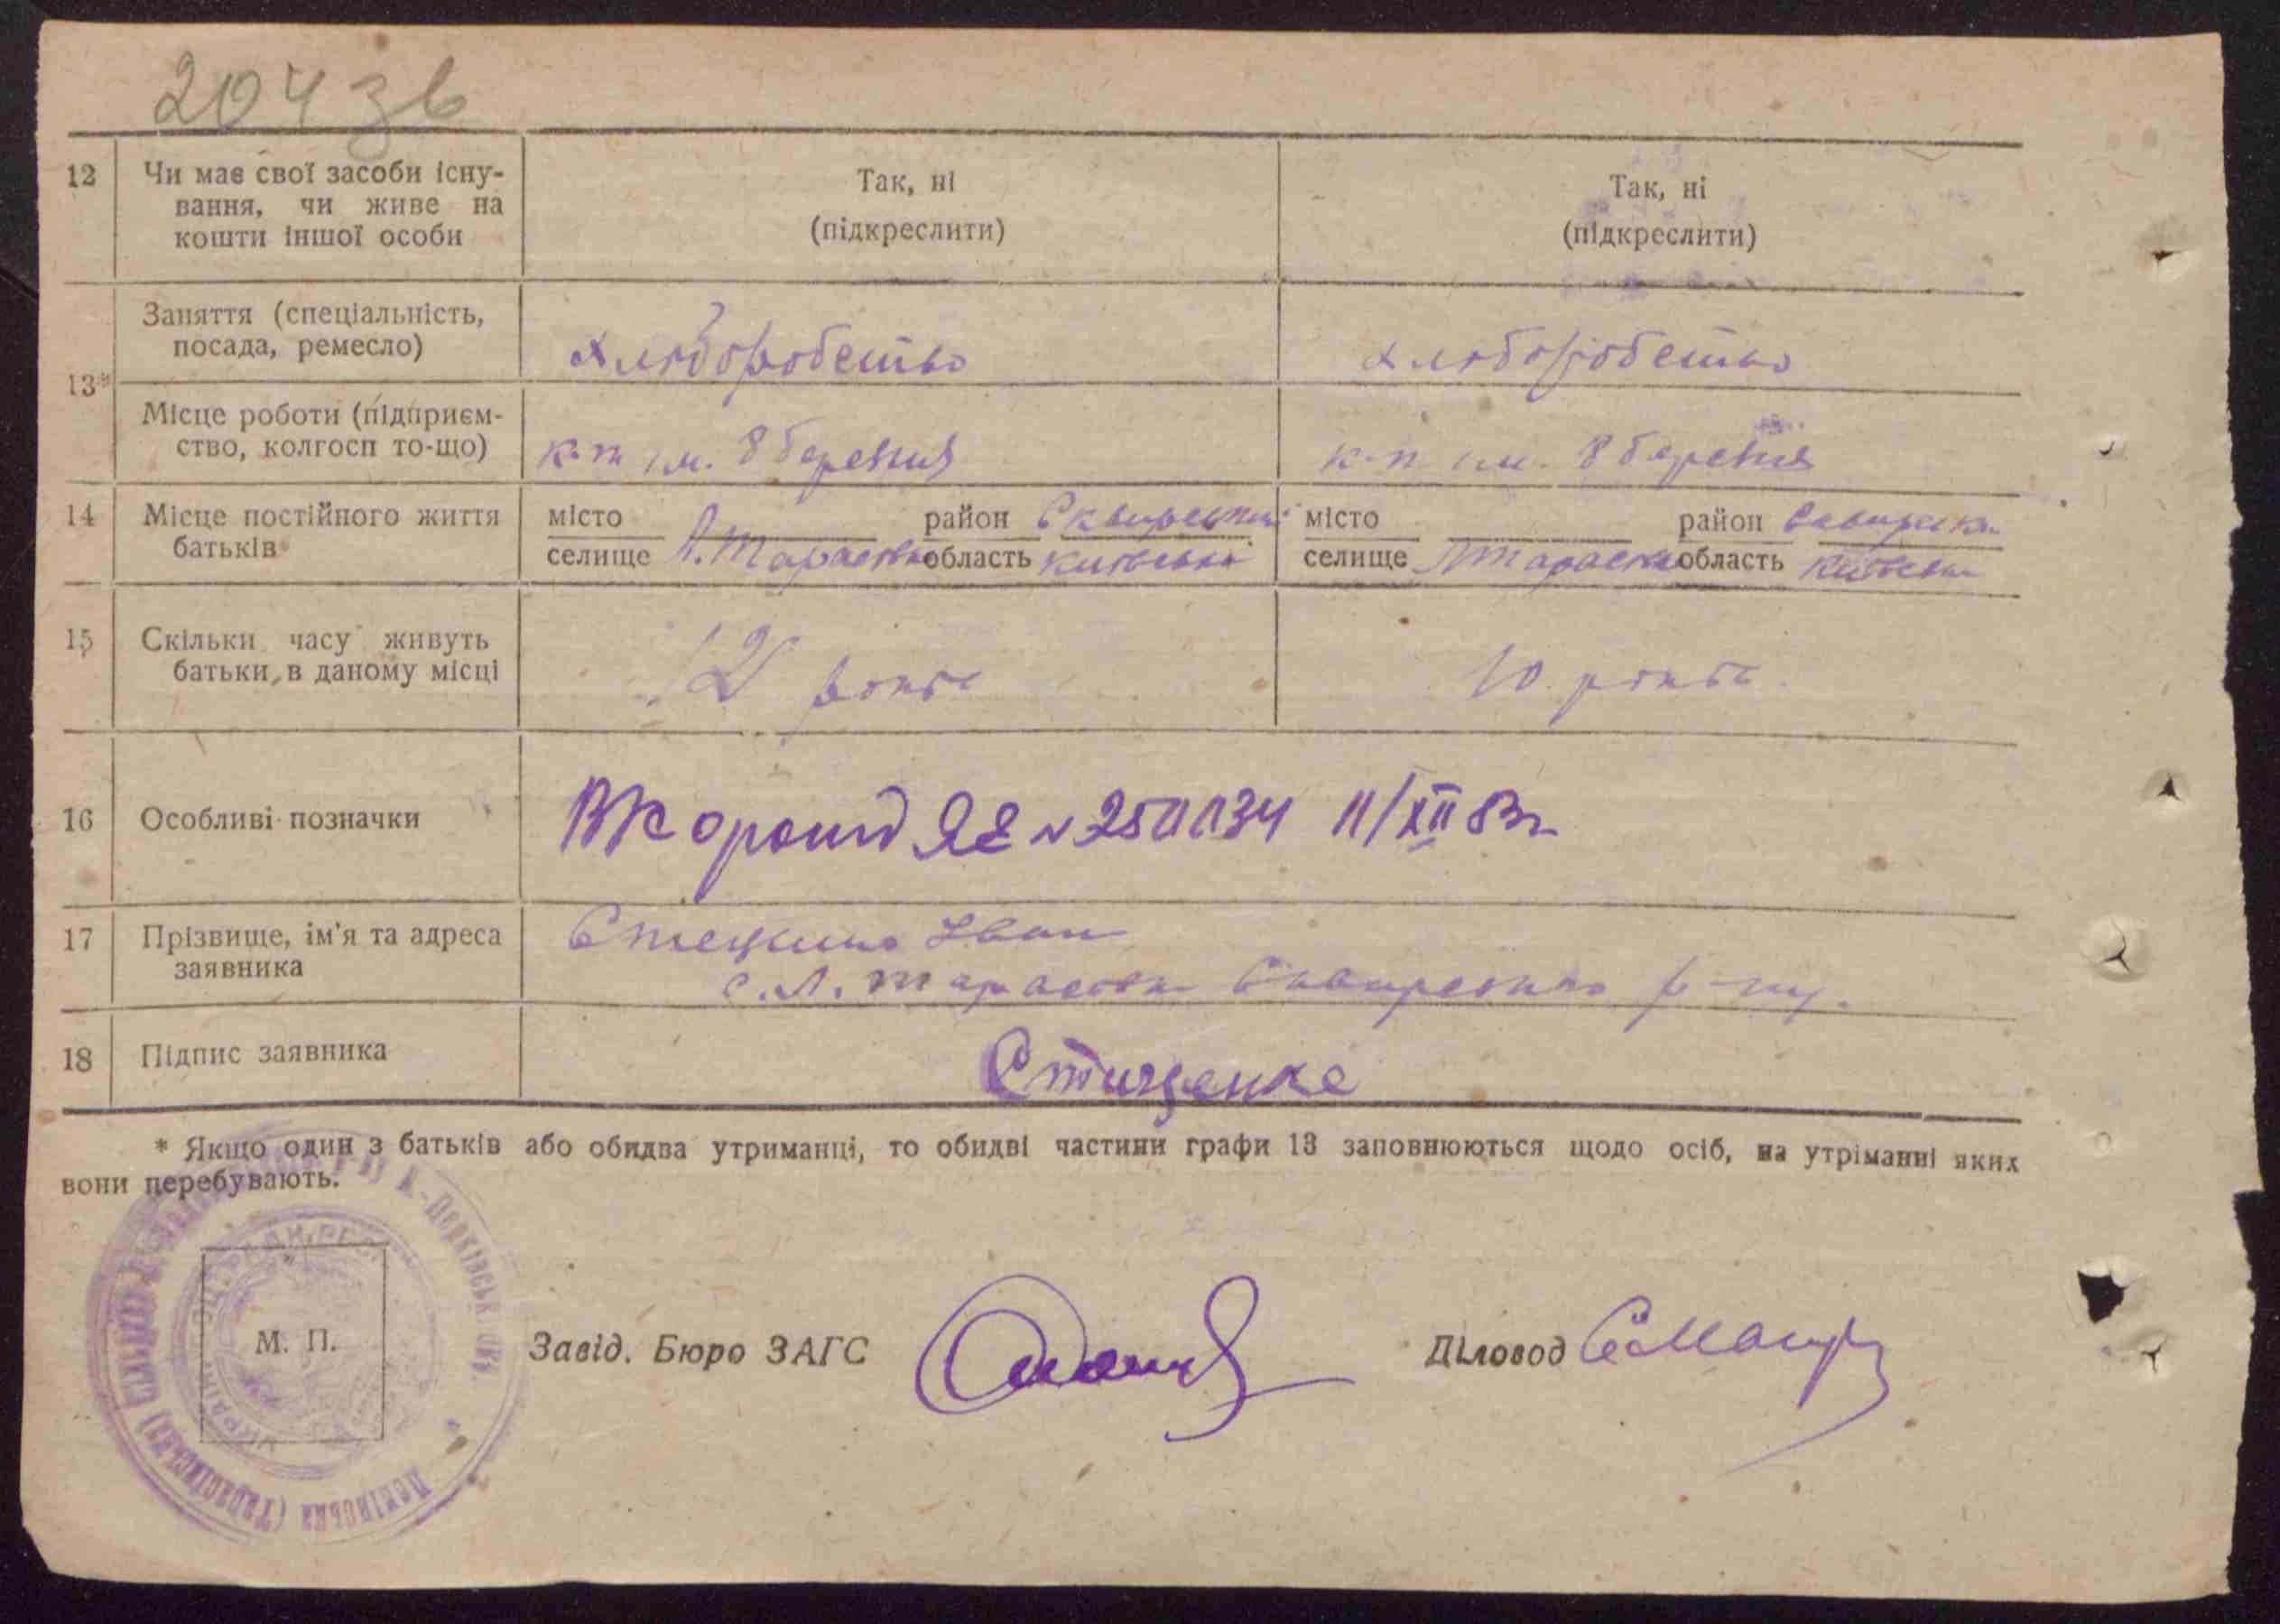 204 зв
12 Чи має свої засоби існу-
вання, чи живе на
кошти іншої особи
Так, ні
(підкреслити)
Так, ні
(підкреслити)
13*
Заняття (спеціальність,
посада, ремесло)
хлюборобство
хлюборобство
Місце роботи (підприєм-
ство, колгосп то-що)
к-п ім. 8 березня
к-п ім. 8 березня
14 Місце постійного життя
батьків
місто
селище Л. Тарасівка
район Сквирський
область Київська
місто
селище Л Тарасівка
район Сквирськ
область Київська
15 Скільки часу живуть
батьки в даному місці
12 років
10 років
16 Особливі позначки
11/XII 83г
17 Прізвище, ім'я та адреса
заявника
Іван
с. Л. Тарасівка Сквирського р-ну.
18 Підпис заявника
Стищенке
* Якщо один з батьків або обидва утриманці, то обидві частини графи 13 заповнюються щодо осіб, на утріманні яких
вони перебувають.
М. П.
Завід. Бюро ЗАГС
Діловод